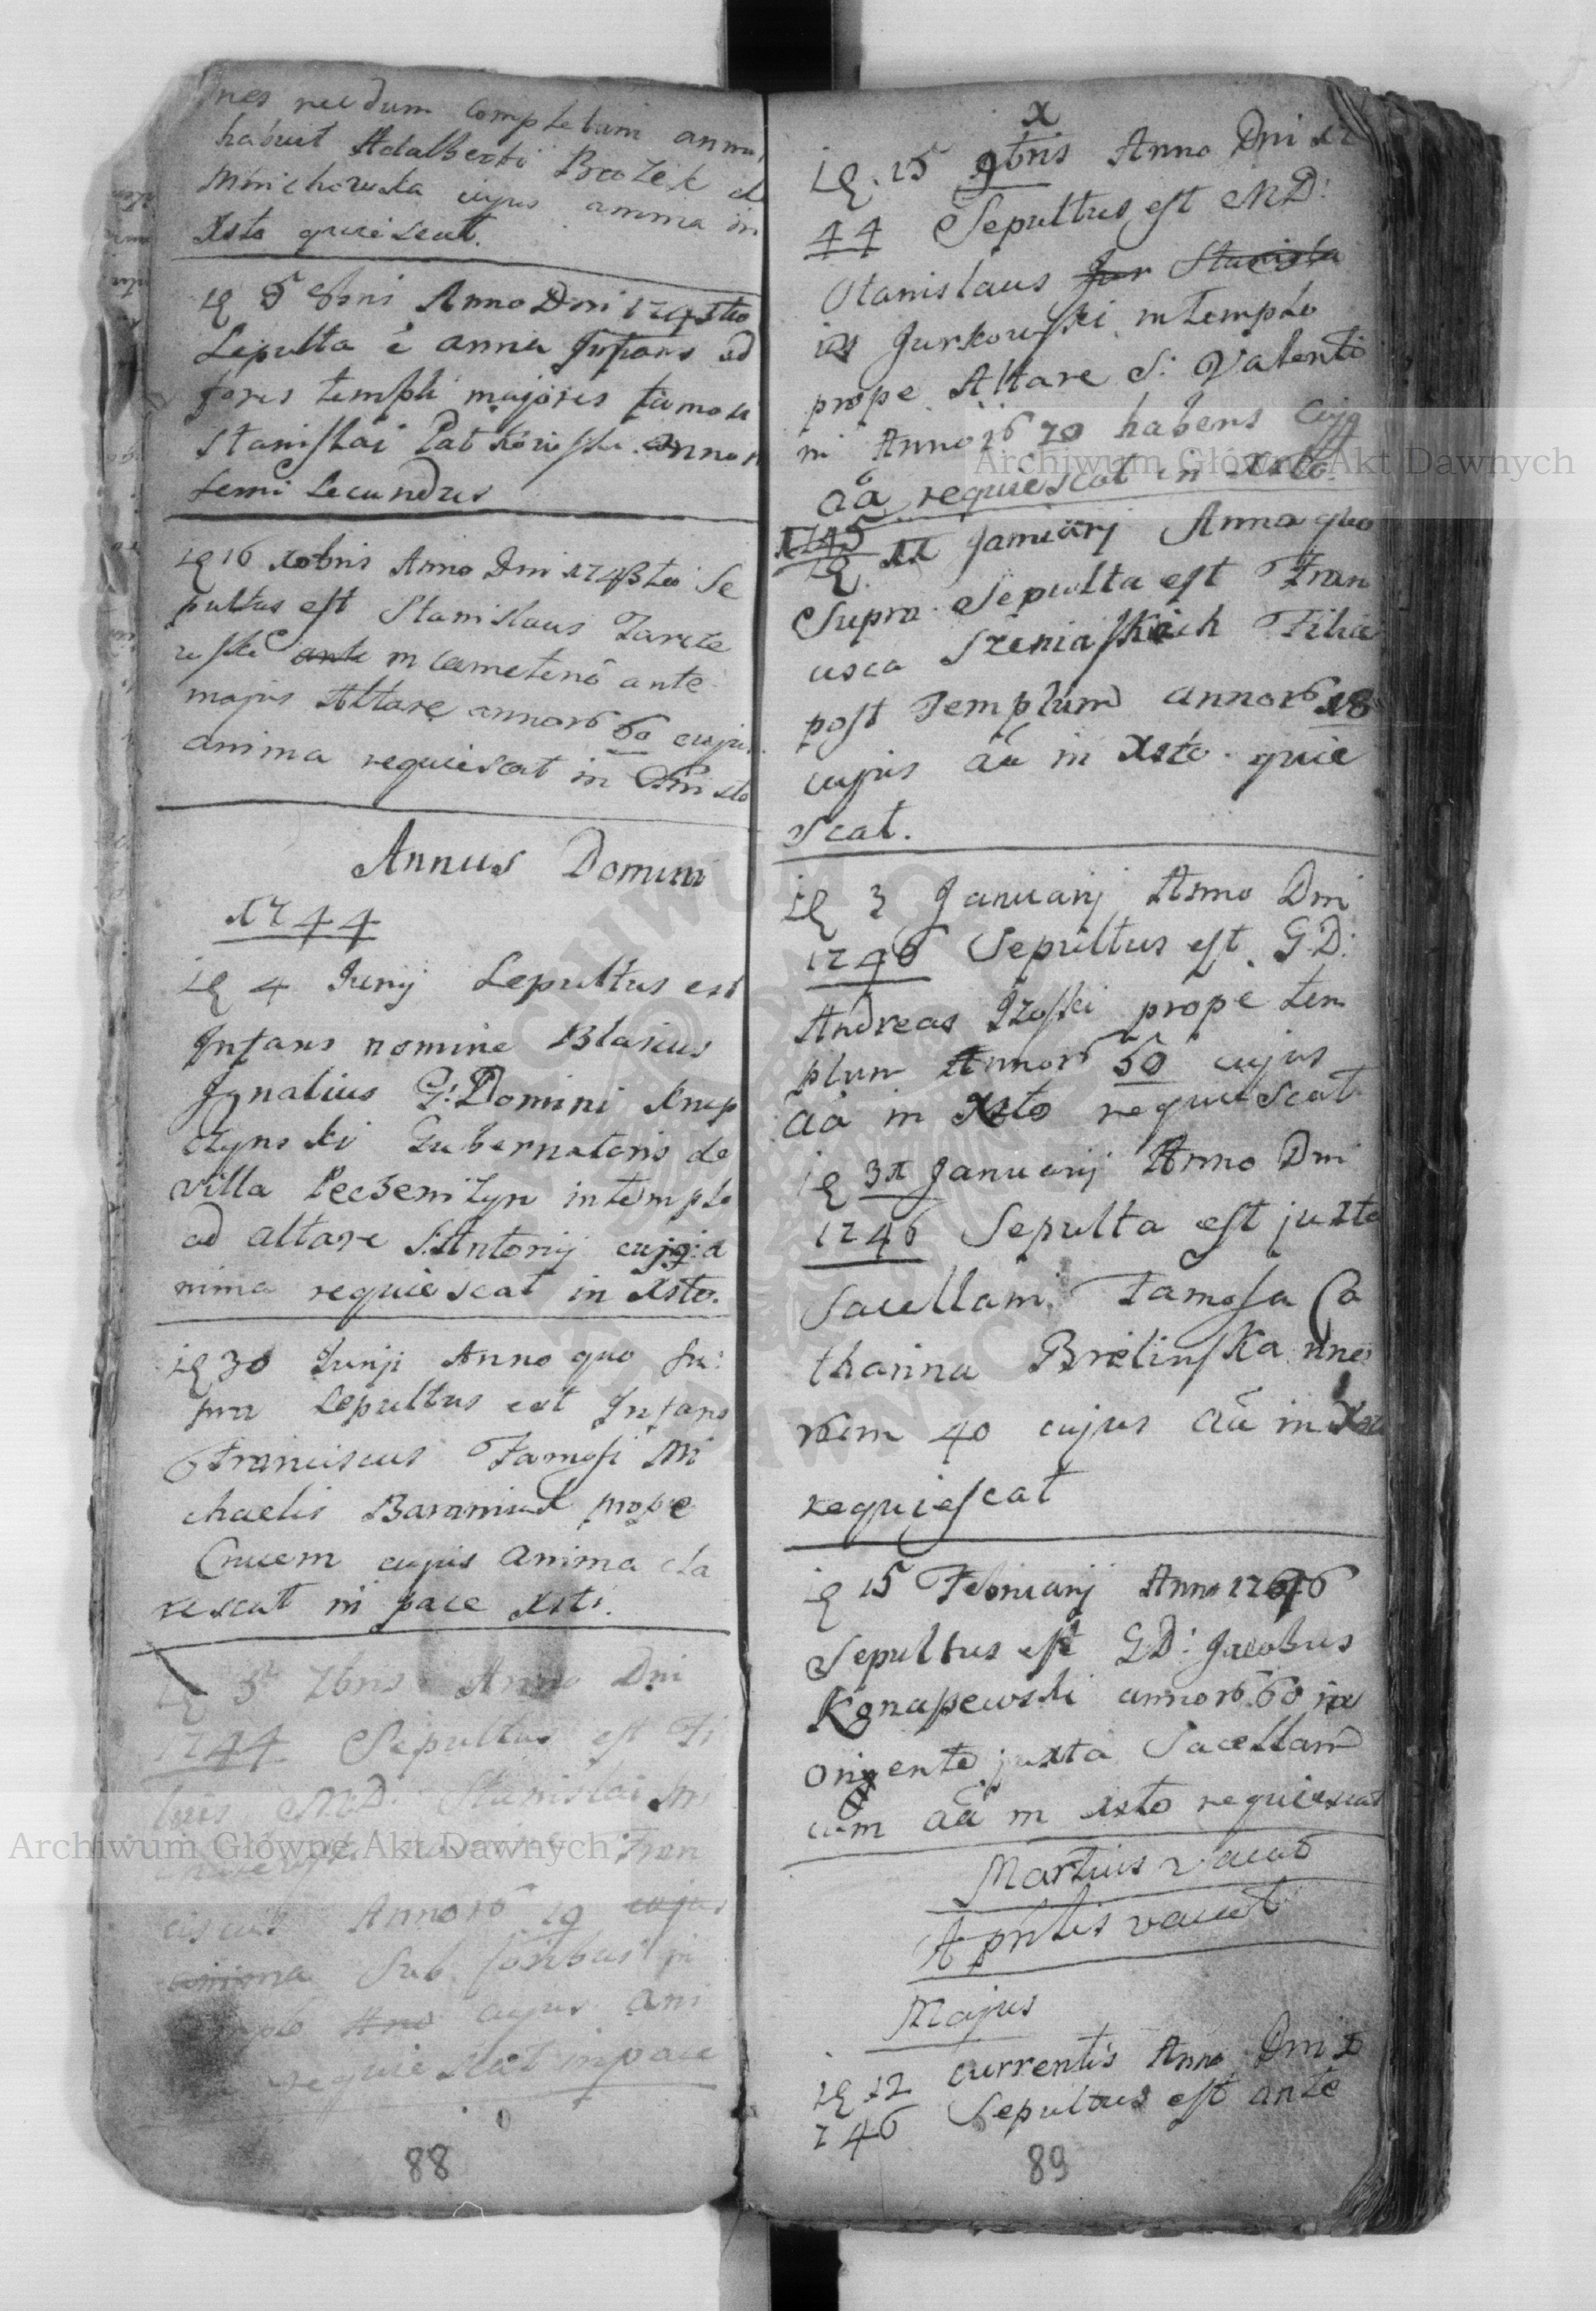 nes necdum completum annu
habuit Adalberti Brozek et
Mnichowska cujus anima in
Xsto quiescat.
5 8bris Anno Dni 1743tio
Sepulta è anna Infans ad
fores templi majores famosi
Stanislai Patkowski annor
semi secundus
16 Xbris Anno Dni 1743tio Se
pultus est Stanislaus Zarcze
wski ante in cœmeterió ante
majus Altare annor 60 cujus
anima requiescat in Christo
Annus Domini
1744
4 Junij Sepultus est
Infans nomine Blasius
Ignatius G: Domini Krup
czynski Gubernatoris de
villa Peczeniżyn in templo
ad altare S: Antonij cujq a
nima requiescat in Xsto.
30 Junji Anno quo Su:
pra Sepultus est Infans
Franciscus Famosi Mi
chaelis Baraniuk prope
Crucem cujus anima cla
rescat in pace Xsti.
3 7bris Anno Dni
1744 Sepultus est Fi
lius MD: Stanislai Mi
Fran
ciscus Annor 19 cujus
anima Sub foribus in
templo cujus ani
requiescat in pace
88
X
15 9bris Anno Dni 17
44 Sepultus est MD:
Stanislaus Jur Stanisla
us Jurkowski in templo
prope Altare S: Valenti
ni Annor 70 habens Cujq
aa requiescat in Xsto.
1745
11 Januarij Anno quo
Supra Sepulta est Fran
cisca Szeniaskich Filia
post Templum annor 18
cujus aa in Xsto quie
scat.
3 Januarij Anno Dni
1746 Sepultus est GD:
Andreas Izoski prope tem
plum Annor 50 cujus
aa in Xsto requiescat
31 Januarij Anno Dni
1746 Sepulta est juxta
Sacellam Famosa Ca
tharina Brelinska nnos
rum 40 cujus aa in Xsto
requiescat
15 Februarij Anno 1746
Sepultus est GD: Jacobus
Kgnapewski annor 60 in
oriente juxta Sacellam
cum aa in Xsto requiescat
Martius vacat
Aprilis vacat
Majus
12 currentis Anno Dni 1
746 Sepultus est ante
89
Archiwum Główne Akt Dawnych
Archiwum Główne Akt Dawnych